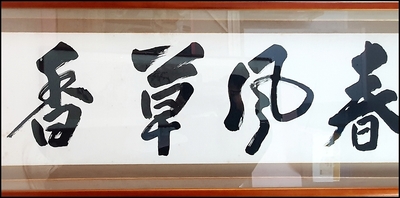 春風草香